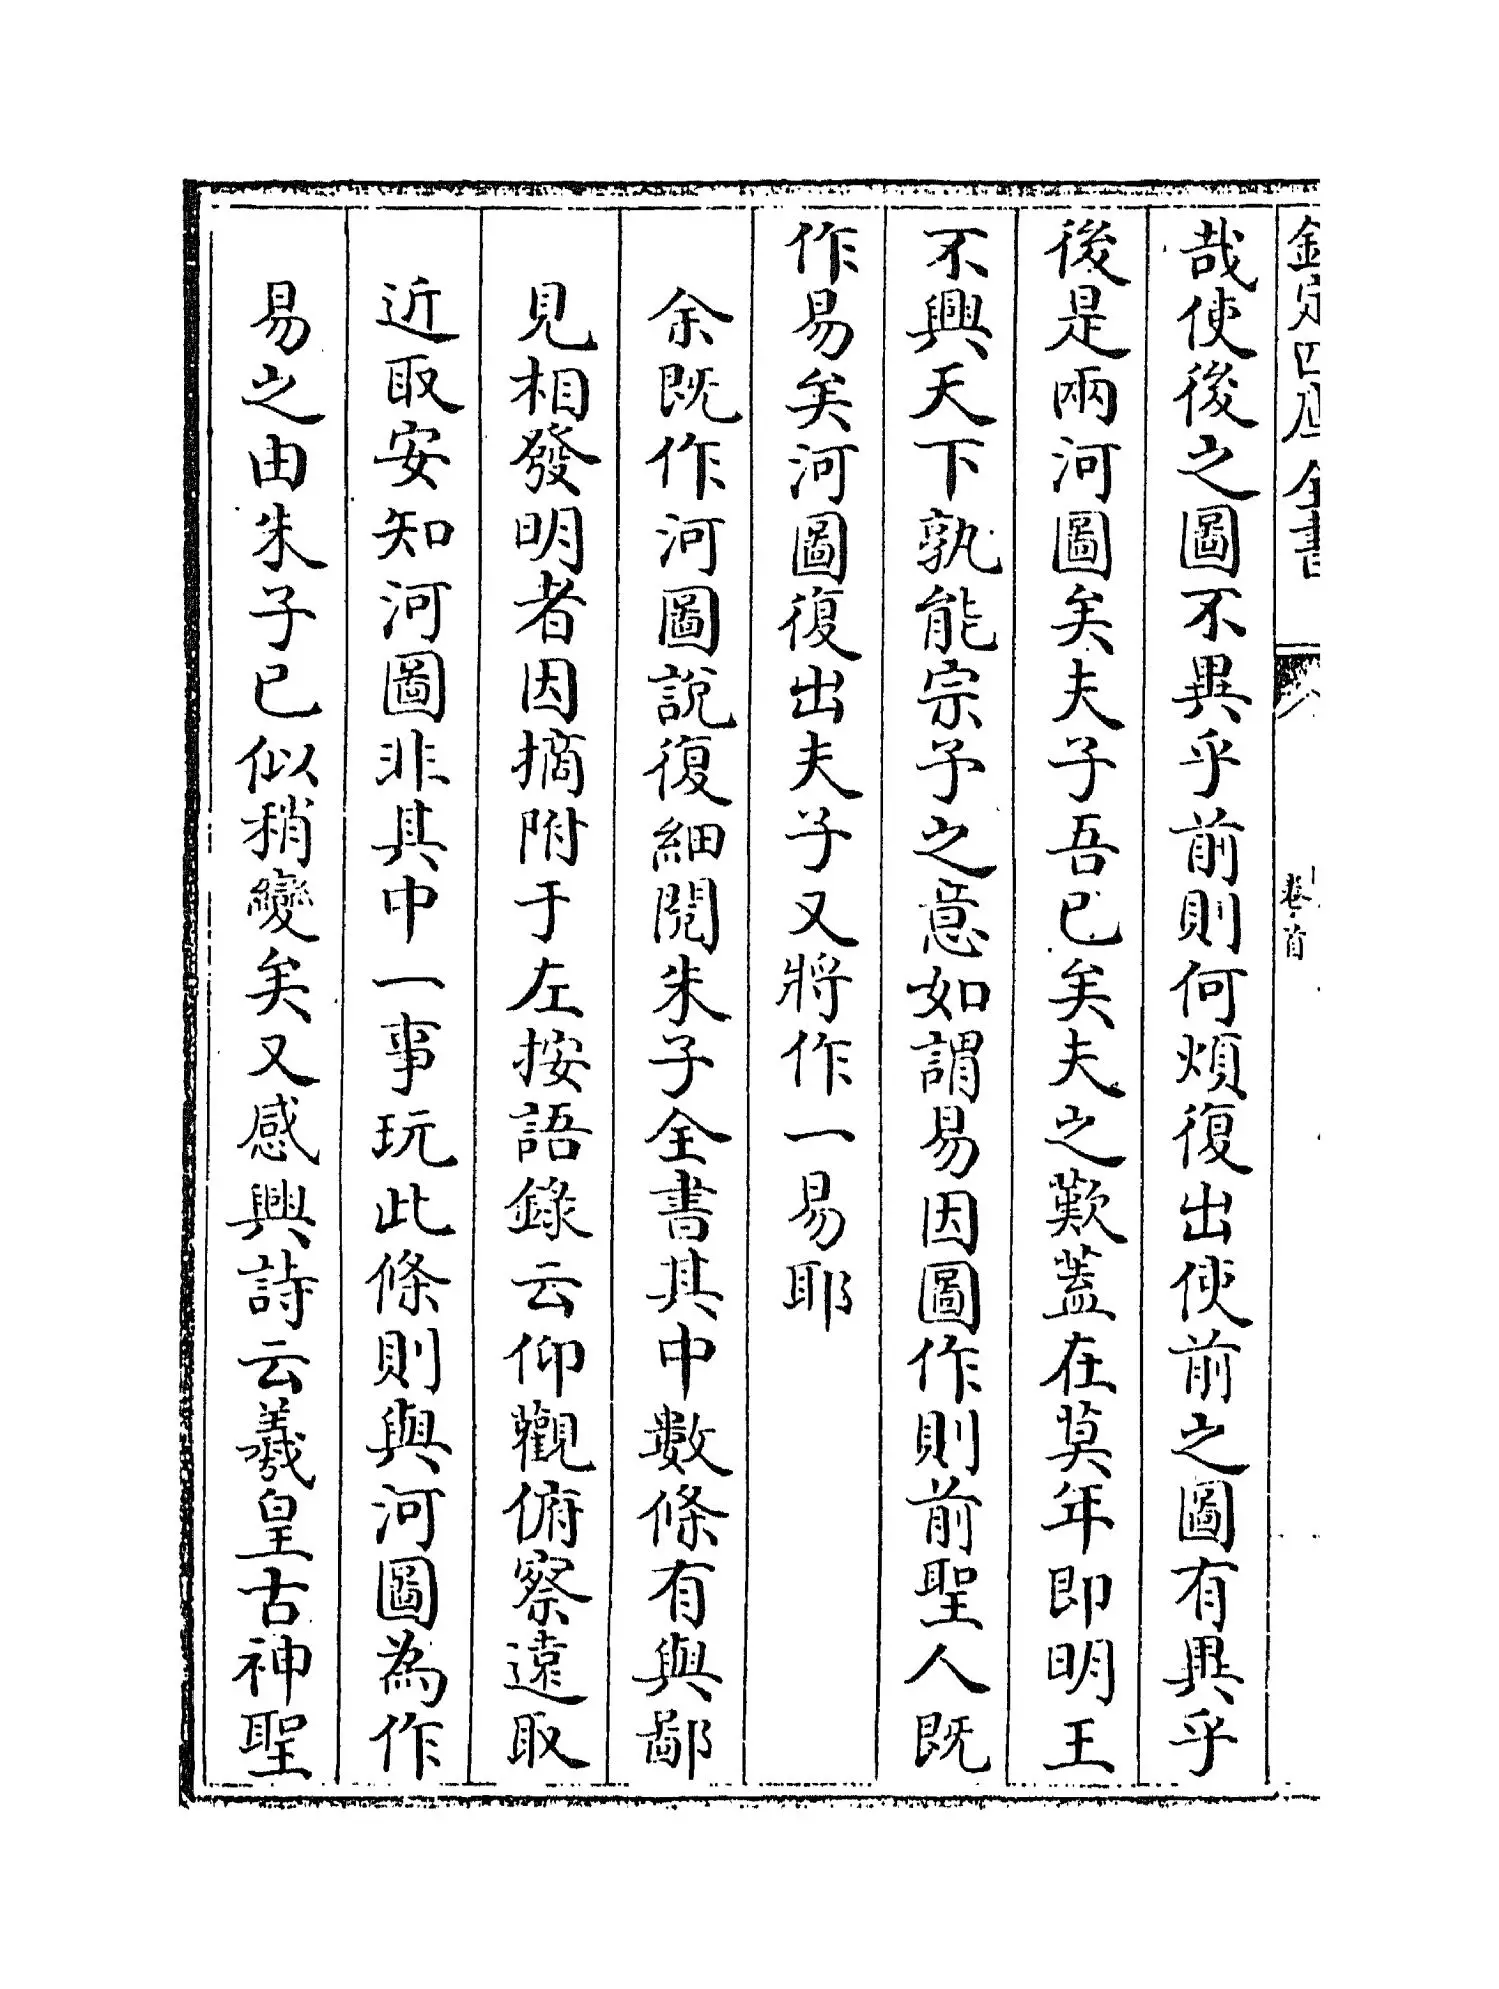 欽定四庫全書
卷首
哉使後之圖不異乎前則何煩復出使前之圖有異乎
後是兩河圖矣夫子吾已矣夫之歎蓋在莫年即明王
不興天下孰能宗予之意如謂易因圖作則前聖人既
作易矣河圖復出夫子又將作一易耶
余既作河圖說復細閱朱子全書其中數條有與鄙
見相發明者因摘附于左按語錄云仰觀俯察遠取
近取安知河圖非其中一事玩此條則與河圖為作
易之由朱子已似稍變矣又感興詩云羲皇古神聖